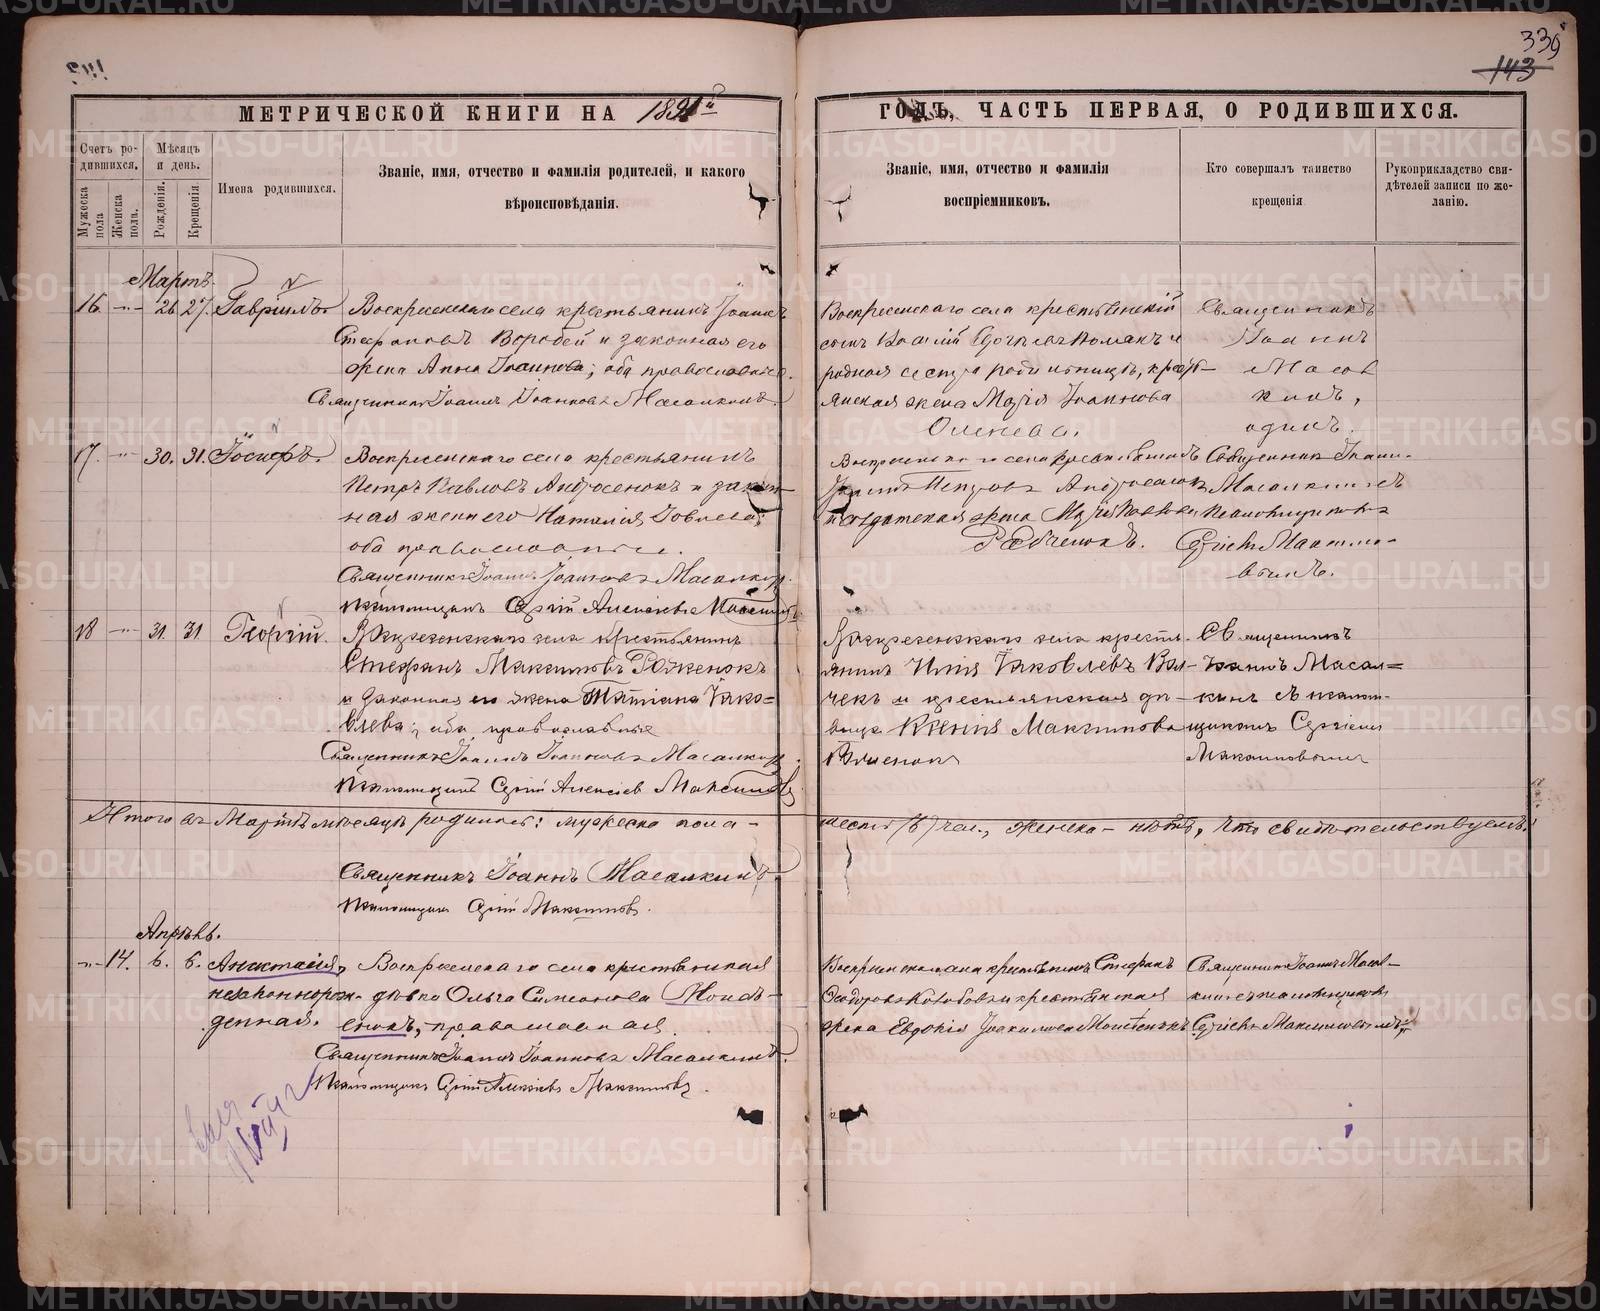 339
143
МЕТРИЧЕСКОЙ КНИГИ НА 1891й
ГОДЪ, ЧАСТЬ ПЕРВАЯ, О РОДИВШИХСЯ.
Счетъ ро-
дившихся.
Мѣсяцъ
и день.
Мужеска
пола
Женска
пола.
Рожденія.
Крещенія.
Имена родившихся.
Званіе, имя, отчество и фамилія родителей, и какого
вѣроисповѣданія.
Званіе, имя, отчество и фамилія
воспріемниковъ.
Кто совершалъ таинство
крещенія
Рукоприкладство сви-
дѣтелей записи по же-
ланію.
Мартъ.
16. 26 27. Гавріилъ
Воскресенскаго села крестьянинъ Іоаннъ
Стефановъ Воробей и законная его
жена Анна Іоаннова; оба православные.
Священникъ Іоаннъ Іоанновъ Масалкинъ.
Воскресенскаго села крестьянскій
сынъ
родная сестра родильницы, кресть-
янская жена Марія Іоаннова
Священникъ
Іоаннъ
Масал
кинъ,
одинъ.
17. 30. 31. Іосифъ.
Воскресенскаго села крестьянинъ
Петръ Павловъ Андросенокъ и закон-
ная жена его Наталія
оба православные.
Священникъ Іоаннъ Іоанновъ Масалкинъ.
Псаломщикъ Сергій Алексіевъ Максимовъ
Воскресенскаго села
Петровъ Андросенокъ
и солдатская жена Марія
Священник Іоанн
Масалкинъ съ
псаломщикомъ
Сергіемъ Максимо-
вымъ.
18 31. 31 Георгій.
села крестьянинъ
Стефанъ Максимовъ
и законная его жена Татіана Іако-
влева; оба православные
Священникъ Іоаннъ Іоанновъ Масалкинъ.
Псаломщикъ Сергій Алексіевъ Максимовъ
села кресть-
янинъ Илія Іаковлевъ Вал-
чекъ и крестьянская дѣ-
вица Ксенія Максимова
Священникъ
Іоаннъ Масал=
кинъ съ псалом-
щикомъ Сергіемъ
Максимовымъ
Итого въ Мартѣ мѣсяцѣ родилось: мужеска пола –
шесть /6/ чел., женска – нѣтъ, что свидѣтельствуемъ:
Священникъ Іоаннъ Масалкинъ.
Псаломщикъ Сергій Максимовъ.
Апрѣль.
14. 6. 6. Анастасія,
незаконнорож-
денная.
Воскресенскаго села крестьянская
дѣвка Ольга Симеонова Моисѣ-
енокъ, православная.
Священникъ Іоаннъ Іоанновъ Масалкинъ.
Псаломщикъ Сергій Алексіевъ Максимовъ.
Стефанъ
Ѳеодоровъ и крестьянская
жена Евдокія Іоакимова Моисѣенокъ
Священникъ Іоаннъ Масал-
кинъ съ псаломщикомъ
Сергіемъ Максимовымъ
METRIKI.GASO-URAL.RU